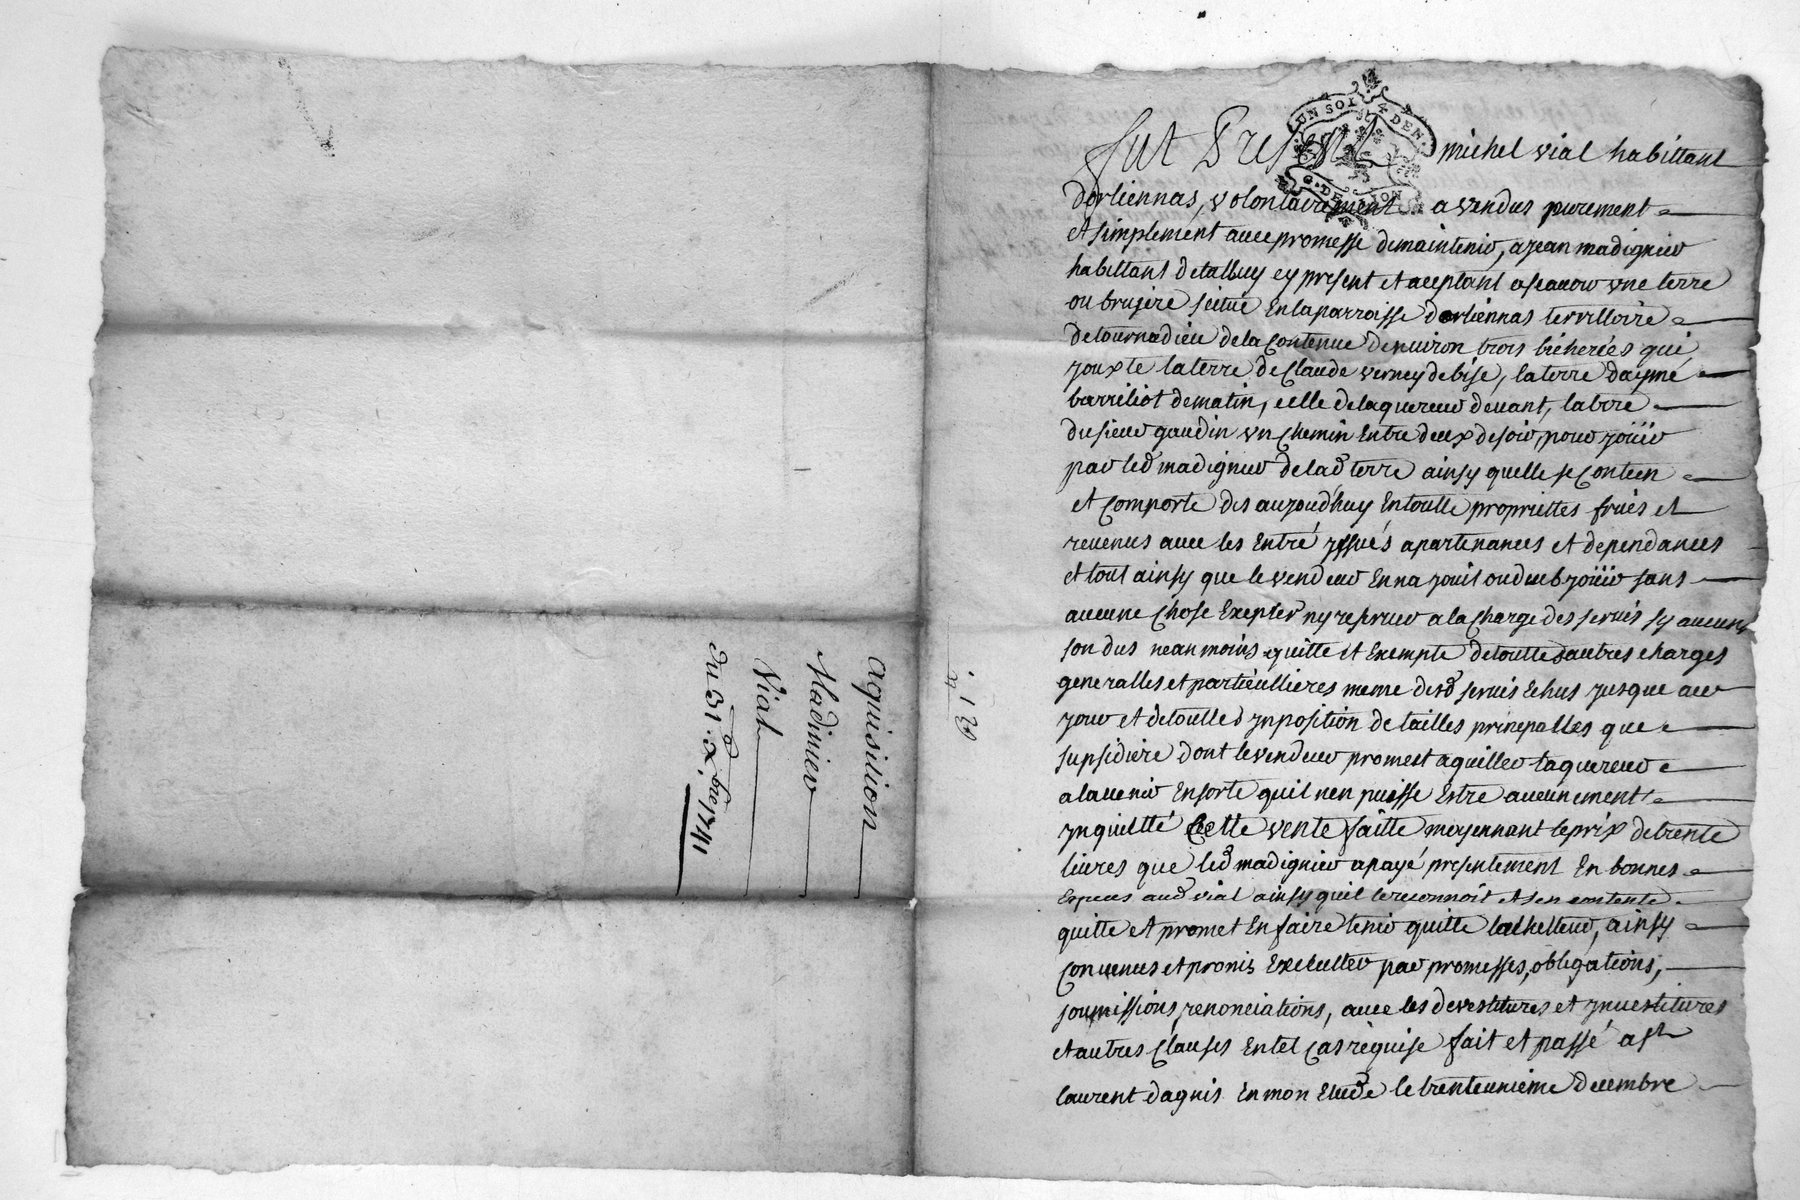 aquisition
Madinier
Vial
du 31e Xbre 1741
UN SOL 4 DEN.
G. DE LYON
fut Present michel vial habittant
dorliennas, volontairement a vendus purement
et simplement avec promesse demaintenir, a jean madignier
habittant detalluy cy present et aceptant ascavoir une terre
ou brujere scitué En la parroisse dorliennas territtoire
detournadieu de la Contenue denviron trois bicherées qui
jouxte la terre de Claude verney debise, la terre daymé
barriliot dematin, celle delaquereur devant, la terre
du sieur gaudin un chemin Entre deux desoir, pour joüir
par led madignier delad terre ainsy quelle se Contien
et Comporte des aujourdhuy En toutte propriettes fruis et
revenus avec les Entré yssués apartenances et dependances
et tout ainsy que le vendeur En na jouit ou deub joüir sans
aucune Chose Excepter ny reserver a la Charge des servis sy aucuns
son dus nean moins quitte et Exempte detouttes autres charges
generalles et particullieres meme desd servis Echus jusque a ce
jour et detoutte d ynposition de tailles principalles que
supsidiere dont le vendeur promest aquitter laquereur
alavenir En sorte quil nen puisse Estre aucunement
ynquietté Cette vente faitte moyennant le prix detrente
livres que led madignier a payé presentement En bonnes
Especes aud vial ainsy quil le reconnoit et sen contente
quitte et promet En faire tenir quitte lachetteur, ainsy
Convenus et promis Executter par promesses, obligations,
soumissions, renonciations, avec les devestitures et ynvestitures
et autres Clauses En tel Cas requise fait et passé a st
laurent dagnis En mon Etude le trenteunieme decembre